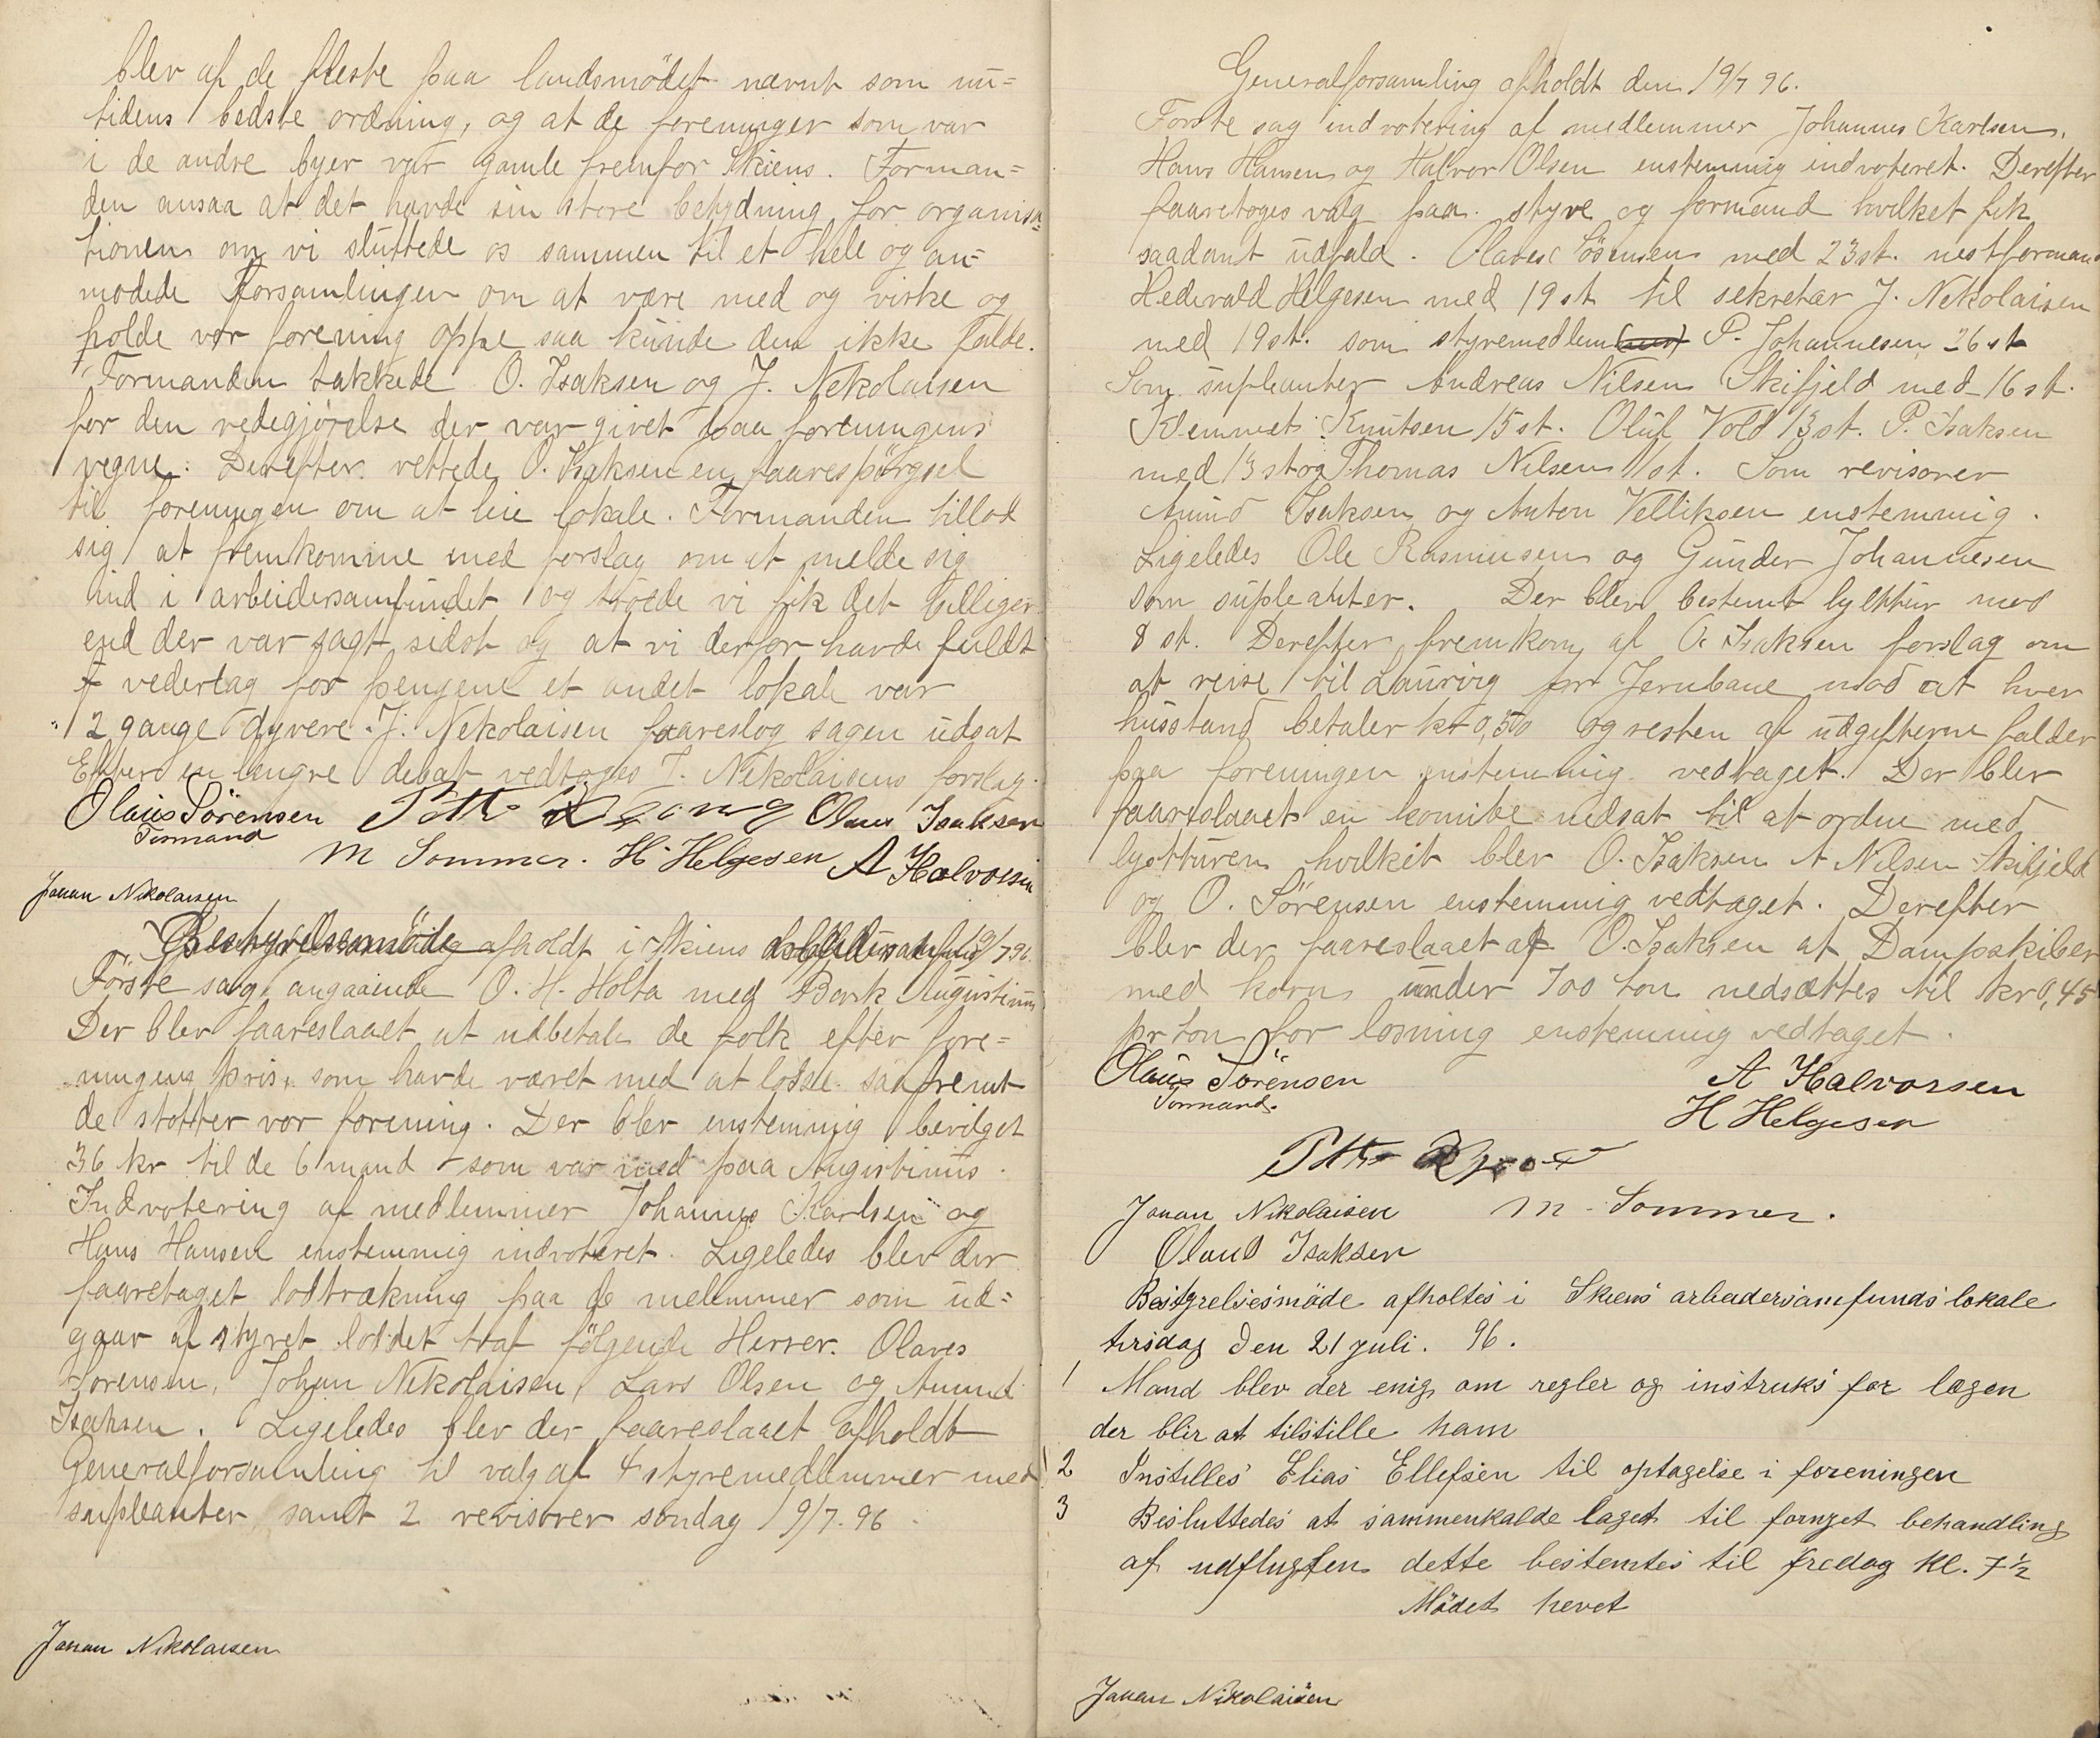 blev af de fleste paa landsmödet nævnt som nu=
tidens bedste ordning, og at de foreninger som var
i de andre byer var gamle fremfor Skiens. Forman=
den ansaa at det havde sin store betydning for organisa=
tionen om vi sluttede os sammen til et hele og an=
modede Forsamlingen om at være med og virke og
holde vor forening oppe saa kunde den ikke falde.
Formanden takkede O. Isaksen og J. Nekolaisen
for den redegjørelse der var givet paa foreningens
vegne. Derefter rettede O. Isaksen en faarespörgsel
til foreningen om at leie lokale. Formanden tillod
sig at fremkomme med forslag om at melde sig
ind i arbeidersamfundet og troede vi fik det billiger
end der var sagt sidst og at vi derfor havde fuldt
vederlag for pengene et andet lokale var
2 gange dyrere. J. Nekolaisen faareslog sagen udsat
Efter en længre debat vedtoges J. Nekolaisens forslag.
Olaus Sörensen Olaus Isaksen
Formand
M Sommer. H Helgesen A Halvorsen
Johan Nikolaisen
Bestyrelsesmöde afholdt i Skiens 19/7 96.
Förste sag angaaende O. H. Holta med Bark Augustinus
Der blev faareslaaet at udbetale de folk efter fore=
ningens pris, som havde været med at losse saafremt
de stötter vor forening. Der blev enstemmig bevilget
36 kr til de 6 mand som var med paa Augistinus.
Indvotering af medlemmer Johannes Karlsen og
Hans Hansen enstemmig indvoteret. Ligeledes blev der
faaretaget lodtrækning paa de melemmer som ud=
gaar af styret loddet traf fölgende Herrer. Olaves
Sorensen, Johan Nekolaisen, Lars Olsen og Amund
Isaksen. Ligeledes blev der faareslaaet afholdt
Generalforsamling til valg af 4 styremedlemmer med
supleanter samt 2 revisorer söndag 19/7. 96
Johan Nikolaisen
Generalforsamling afholdt den 19/7 96.
Förste sag indvotering af medlemmer Johannes Karlsen,
Hans Hansen og Halvor Olsen enstemmig indvoteret. Derefter
faaretoges valg paa styre og formand hvilket fik
saadant udfald. Olaves Sösensen med 23 st. nestformand
Hedevald Helgesen med 19 st til sekretær J. Nekolaisen
med 19 st. som styremedlem P. Johannesen 26 st
Som supleanter Andreas Nilsen Skifjeld med 16 st.
Klemmet Knutsen 15 st. Oluf Vold 13 st. P. Isaksen
med 13 st og Thomas Nilsen 11 st. Som revisorer
Amund Isaksen og Anton Velliksen enstemmig.
Ligeledes Ole Rasmusen og Gunder Johannesen
som supleanter. Der blev bestemt lysttur med
8 st. Derefter fremkom af O. Isaksen forslag om
at reise til Laurvig pr Jernbane mod at hver
husstand betaler kr 0,50 og resten af udgifterne falder
paa foreningen enstemmig vedtaget. Der blev
faareslaaet en komite nedsat til at ordne med
lystturen hvilket blev O. Isaksen A Nilsen Skifjeld
og O. Sörensen enstemmig vedtaget. Derefter
blev der faareslaaet af O. Isaksen at Dampskiber
med korn under 700 ton nedsættes til kr 0,45
pr ton for losning enstemmig vedtaget.
Olaus Sörensen A Halvorsen
Formand. H Helgesen
Johan Nikolaisen M. Sommer.
Olaus Isaksen
Bestyrelsesmöde afholtes i Skiens arbeidersamfunds lokale
tirsdag den 21 juli. 96.
1 Mand blev der enig om regler og instruks for lægen
der blir at tilstille ham
2 Instilles Elias Ellefsen til optagelse i foreningen
3 Besluttedes at sammenkalde laget til fornyet behandling
af udflugten dette bestemtes til fredag kl. 7 1/2
Mödet hevet
Johan Nikolaisen